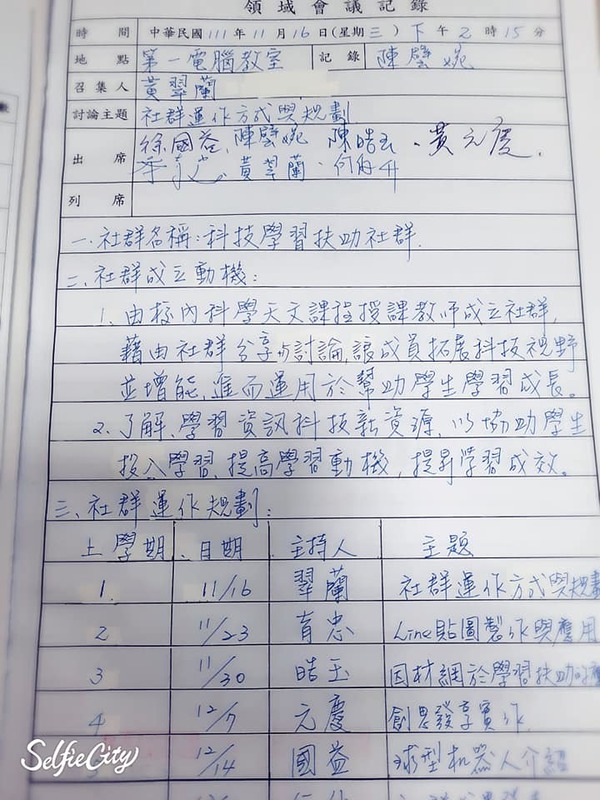 領域會議記錄
時間 中華民國 111 年 11 月 16 日(星期三) 下 午 2 時 15 分
地點 第一電腦教室 記錄 陳壁婉
召集人 黃翠蘭
討論主題 社群運作方式與規劃
出席 徐國益、陳壁婉 陳皓玉、黃元慶、
黃翠蘭、
列席
一、社群名稱:科技學習扶助社群.
二、社群成立動機:
1、由校內科學天文課程授課教師成立社群,
藉由社群分享与討論,讓成員拓展科技視野
並增能,進而運用於幫助學生學習成長。
2、了解、學習資訊科技新資源,以協助學生
投入學習、提高學習動機,提昇学習成效。
三、社群運作規劃:
上學期 日期 主持人 主題
1 11/16 翠蘭 社群運作方式與規劃
2 11/23 育忠 Line貼圖製作與應用
3 11/30 皓玉 因材網於學習扶助
4 12/7 元慶 創思發享實作
12/14 國益 球型机器人介紹
SelfieCity